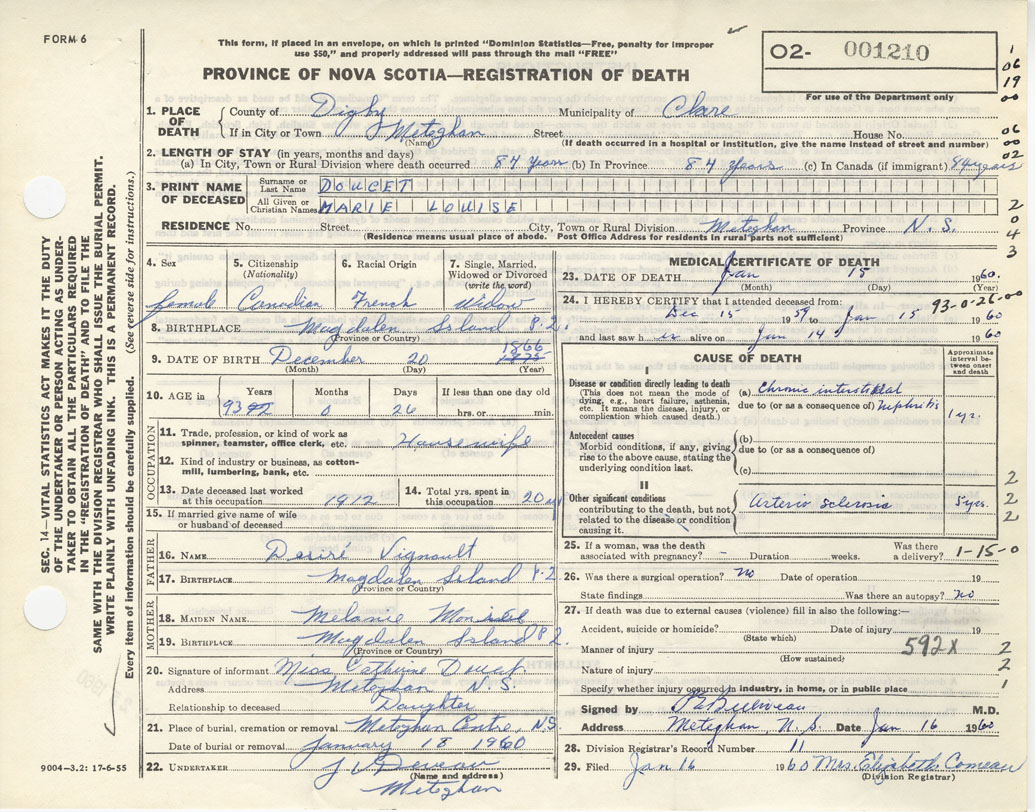 FORM 6
This form, if placed in an envelope, on which is printed "Dominion Statistics—Free, penalty for improper
use $50," and properly addressed will pass through the mail "FREE"
PROVINCE OF NOVA SCOTIA—REGISTRATION OF DEATH
02- 001210
For use of the Department only
1
06
19
00
1. PLACE OF DEATH County of Digby Municipality of Clare
If in City or Town Meteghan Street House No. 06
(Name) (If death occurred in a hospital or institution, give the name instead of street and number) 00
2. LENGTH OF STAY (in years, months and days) 02
(a) In City, Town or Rural Division where death occurred 84 Years (b) In Province 84 Years (c) In Canada (if immigrant) 84 years
3. PRINT NAME OF DECEASED
Surname or Last Name DOUCET
All Given or Christian Names MARIE LOUISE 2
0
RESIDENCE No. Street City, Town or Rural Division Meteghan Province N.S. 4
(Residence means usual place of abode. Post Office Address for residents in rural parts not sufficient) 3
4. Sex 5. Citizenship (Nationality) 6. Racial Origin 7. Single, Married, Widowed or Divorced (write the word)
female Canadian French Widow
8. BIRTHPLACE Magdalen Island P.2.
(Province or Country)
1866
9. DATE OF BIRTH December 20 1875
(Month) (Day) (Year)
10. AGE in Years Months Days If less than one day old
93 0 26 hrs. or min.
OCCUPATION
11. Trade, profession, or kind of work as spinner, teamster, office clerk, etc. Housewife
12. Kind of industry or business, as cotton-mill, lumbering, bank, etc.
13. Date deceased last worked at this occupation 1912 14. Total yrs. spent in this occupation 20
15. If married give name of wife or husband of deceased
FATHER
16. NAME Desiré Vignault
17. BIRTHPLACE Magdalen Island P-2
(Province or Country)
MOTHER
18. MAIDEN NAME Melanie
19. BIRTHPLACE Magdalen Island P2.
(Province or Country)
20. Signature of informant Miss Catherine Doucet
Address Meteghan N.S.
Relationship to deceased Daughter
21. Place of burial, cremation or removal Meteghan Centre, N.S
Date of burial or removal January 18 1960
22. UNDERTAKER
(Name and address)
Meteghan
MEDICAL CERTIFICATE OF DEATH
23. DATE OF DEATH Jan 15 1960.
(Month) (Day)
24. I HEREBY CERTIFY that I attended deceased from: 93-0-26-00
Dec 15 1959 to Jan 15 1960
and last saw her alive on Jan 14 1960
CAUSE OF DEATH
Approximate interval between onset and death
I
Disease or condition directly leading to death
(This does not mean the mode of dying, e.g., heart failure, asthenia, etc. It means the disease, injury, or complication which caused death.)
(a) Chronic interstitial
due to (or as a consequence of) Nephritis 1 yr.
Antecedent causes
Morbid conditions, if any, giving rise to the above cause, stating the underlying condition last.
(b)
due to (or as a consequence of)
(c)
II
Other significant conditions
contributing to the death, but not related to the disease or condition causing it.
Arterio sclerosis 5 yrs.
2
2
25. If a woman, was the death associated with pregnancy? - Duration weeks. Was there a delivery? 1-15-0
26. Was there a surgical operation? No Date of operation 19
State findings Was there an autopsy? No
27. If death was due to external causes (violence) fill in also the following:—
Accident, suicide or homicide? Date of injury 19
(State which)
Manner of injury 592X 2
(How sustained)
Nature of injury 2
Specify whether injury occurred in industry, in home, or in public place 1
Signed by M.D.
Address Meteghan, N.S. Date Jan 16 1960
28. Division Registrar's Record Number 11
29. Filed Jan 16 1960 Mrs. Elizabeth Comeau
(Division Registrar)
SEC. 14—VITAL STATISTICS ACT MAKES IT THE DUTY
OF THE UNDERTAKER OR PERSON ACTING AS UNDER-
TAKER TO OBTAIN ALL THE PARTICULARS REQUIRED
IN THE "REGISTRATION OF DEATH" AND TO FILE THE
SAME WITH THE DIVISION REGISTRAR WHO SHALL ISSUE THE BURIAL PERMIT.
WRITE PLAINLY WITH UNFADING INK. THIS IS A PERMANENT RECORD.
Every item of information should be carefully supplied. (See reverse side for instructions.)
9004—3.2: 17-6-55